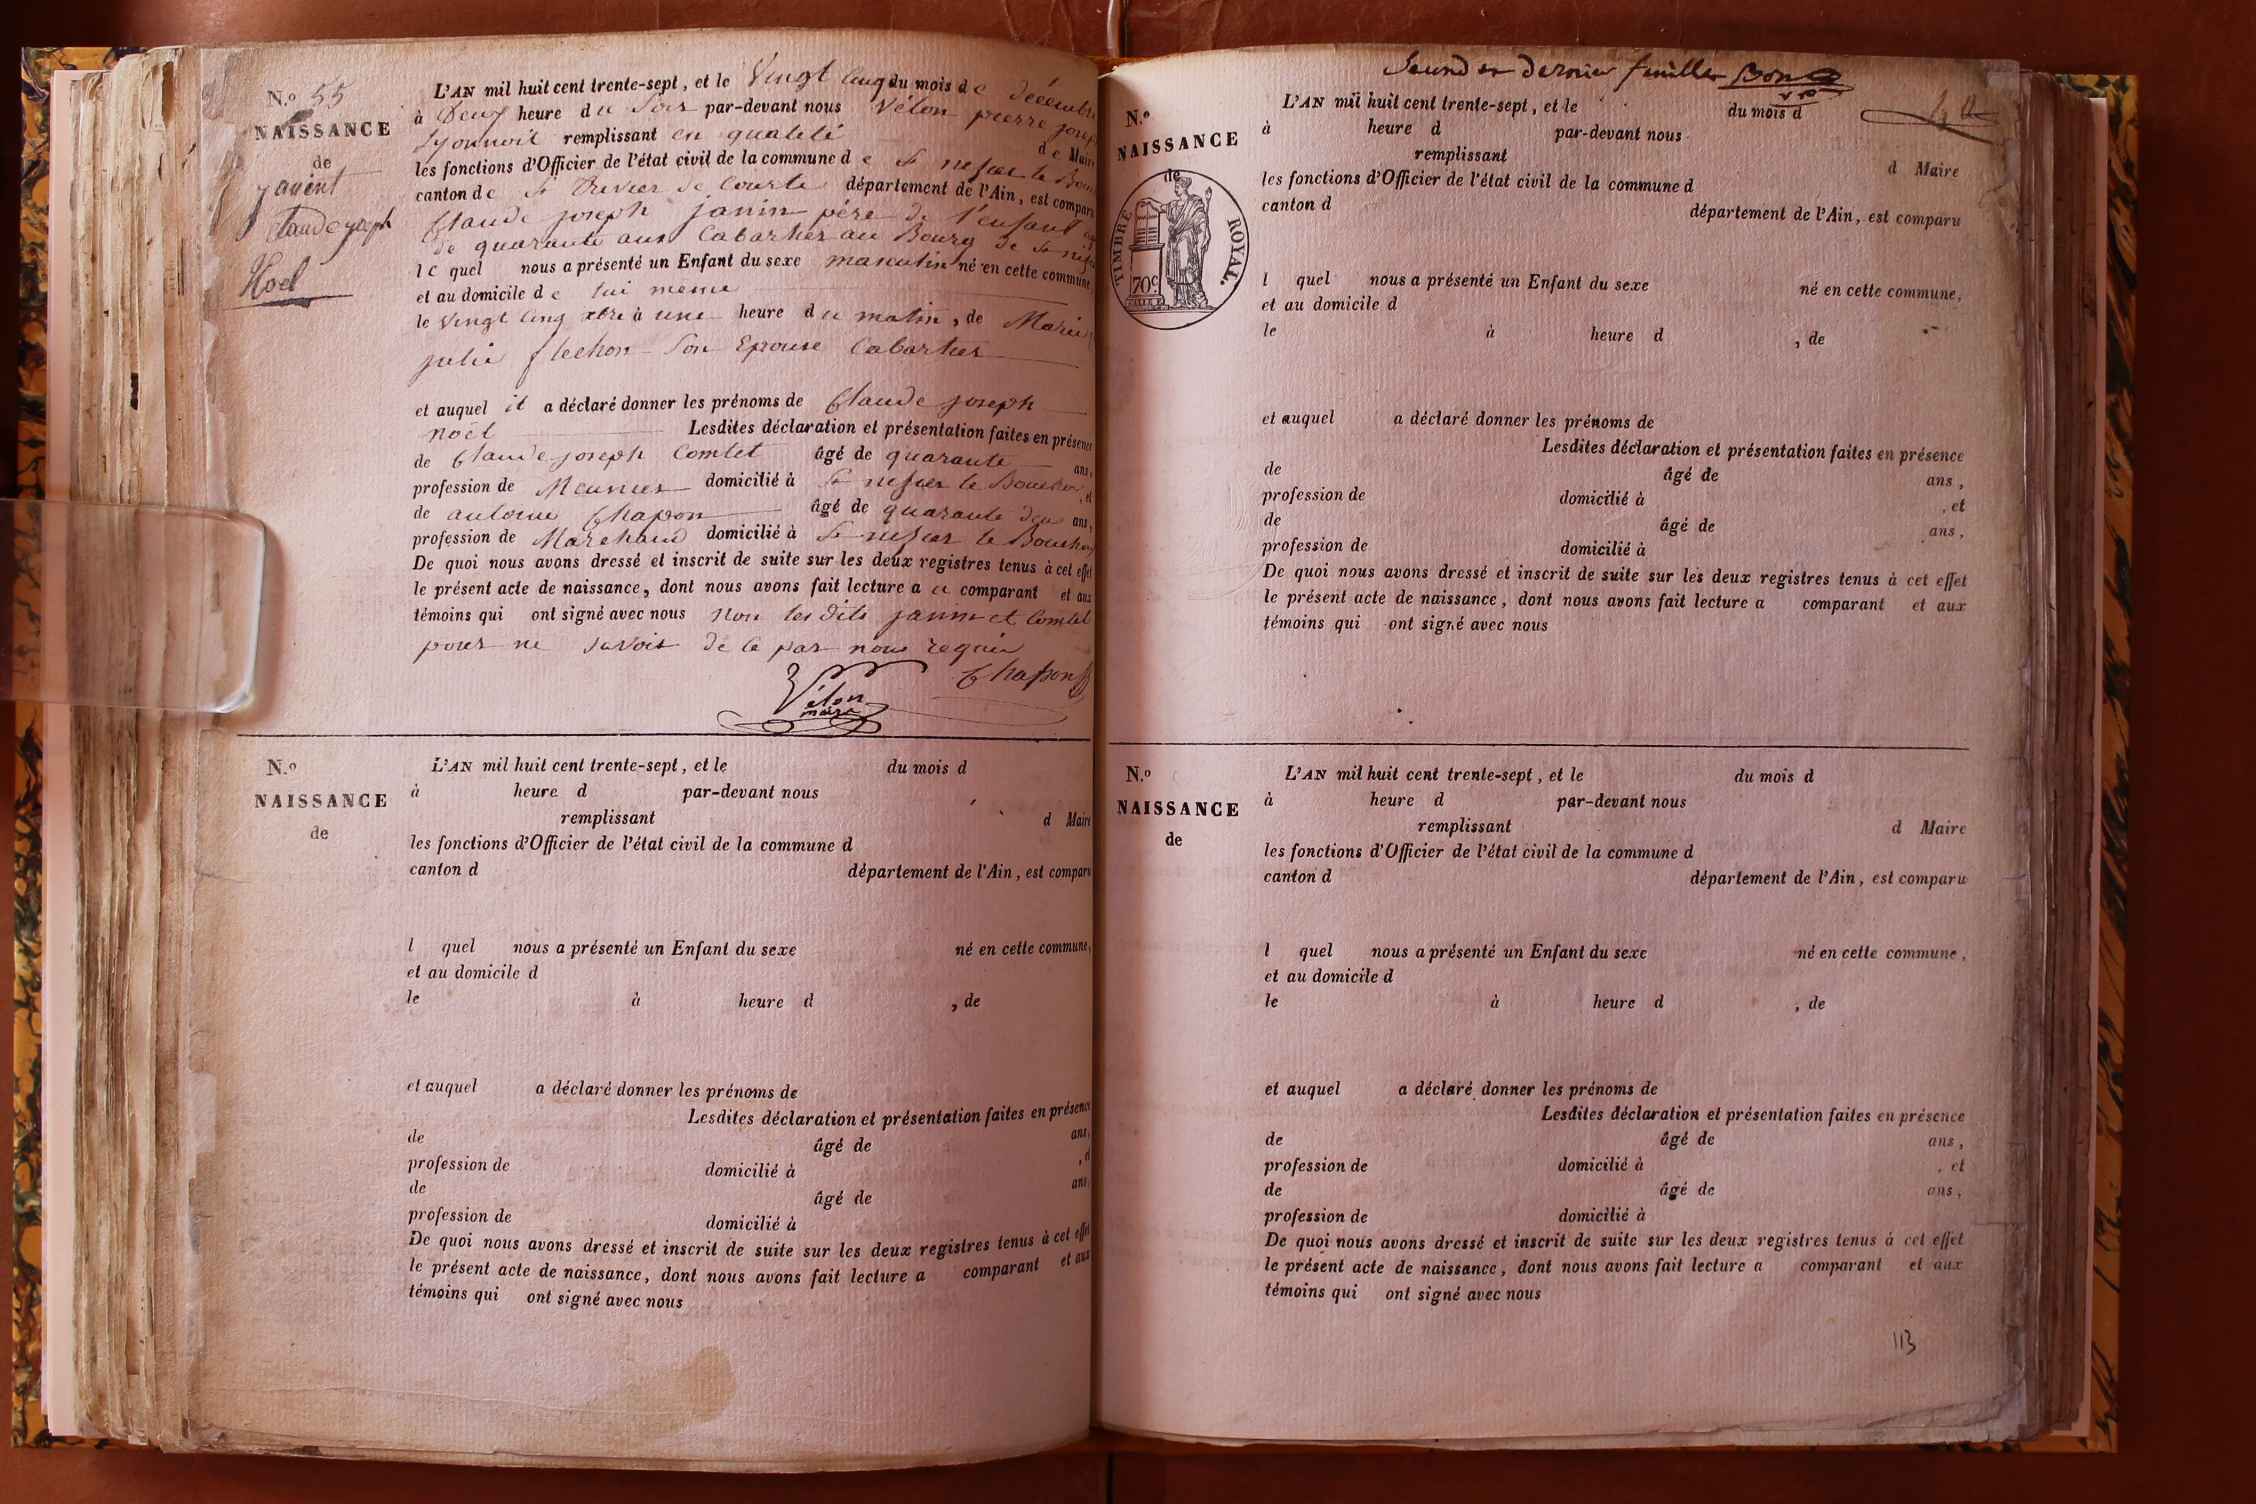 N.o 55
NAISSANCE
de
janint
Claude joseph
Noel
L'AN mil huit cent trente-sept, et le Vingt cinq du mois de décembre
à Deux heure du Soir par-devant nous Vélon pierre joseph
remplissant en qualité de Maire
les fonctions d'Officier de l'état civil de la commune de St nizier le Bou
canton de St Trivier de Courte département de l'Ain, est comparu
Claude joseph janin père de l'enfant
de quarante ans Cabartier au Bourg de St nizie
le quel nous a présenté un Enfant du sexe masculin né en cette commune,
et au domicile de lui meme
le Vingt cinq xbre à une heure du matin, de Marie
julie flechon Son Epouse Cabartier
et auquel il a déclaré donner les prénoms de Claude joseph
noël Lesdites déclaration et présentation faites en présence
de Claude joseph Comtet âgé de quarante ans,
profession de Meunier domicilié à St nizier le Bouchou, et
de antoine Chapon âgé de quarante deux ans,
profession de Marchand domicilié à St nizier le Bouchou
De quoi nous avons dressé et inscrit de suite sur les deux registres tenus à cet effet
le présent acte de naissance, dont nous avons fait lecture au comparant et aux
témoins qui ont signé avec nous non les dits janin et Comtet
pour ne savoir de ce par nous requis
Chapon
Vélon
maire
N.o
NAISSANCE
de
L'AN mil huit cent trente-sept, et le du mois d
à heure d par-devant nous
remplissant d Maire
les fonctions d'Officier de l'état civil de la commune d
canton d département de l'Ain, est comparu
l quel nous a présenté un Enfant du sexe né en cette commune,
et au domicile d
le à heure d , de
et auquel a déclaré donner les prénoms de
Lesdites déclaration et présentation faites en présence
de âgé de ans,
profession de domicilié à , et
de âgé de ans,
profession de domicilié à
De quoi nous avons dressé et inscrit de suite sur les deux registres tenus à cet effet
le présent acte de naissance, dont nous avons fait lecture a comparant et aux
témoins qui ont signé avec nous
Second et dernier feuillet Bon
N.o
NAISSANCE
de
TIMBRE ROYAL.
70c
L'AN mil huit cent trente-sept, et le du mois d
à heure d par-devant nous
remplissant d Maire
les fonctions d'Officier de l'état civil de la commune d
canton d département de l'Ain, est comparu
l quel nous a présenté un Enfant du sexe né en cette commune,
et au domicile d
le à heure d , de
et auquel a déclaré donner les prénoms de
Lesdites déclaration et présentation faites en présence
de âgé de ans,
profession de domicilié à , et
de âgé de ans,
profession de domicilié à
De quoi nous avons dressé et inscrit de suite sur les deux registres tenus à cet effet
le présent acte de naissance, dont nous avons fait lecture a comparant et aux
témoins qui ont signé avec nous
N.o
NAISSANCE
de
L'AN mil huit cent trente-sept, et le du mois d
à heure d par-devant nous
remplissant d Maire
les fonctions d'Officier de l'état civil de la commune d
canton d département de l'Ain, est comparu
l quel nous a présenté un Enfant du sexe né en cette commune,
et au domicile d
le à heure d , de
et auquel a déclaré donner les prénoms de
Lesdites déclaration et présentation faites en présence
de âgé de ans,
profession de domicilié à , et
de âgé de ans,
profession de domicilié à
De quoi nous avons dressé et inscrit de suite sur les deux registres tenus à cet effet
le présent acte de naissance, dont nous avons fait lecture a comparant et aux
témoins qui ont signé avec nous
113